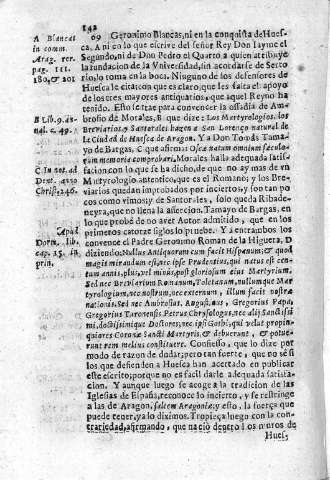 142
A Blancas
in comm.
Arag. rer.
pag. 111.
180, & 201
B Lib. 9. an-
nal. c. 49.
C In not. ad
Dextr. anno
Christ. 246.
D Apud
Dorm. lib.
cap. 15. in
prin.
69 Geronimo Blancas, ni en la conquista de Hues-
ca, A ni en lo que escrive del señor Rey Don Iayme el
Segundo, ni de Don Pedro el Quarto a quien atribuye
la fundacion de la Vniversidad, sin acordarse de Serto-
rio, lo toma en la boca. Ninguno de los defensores de
Huesca le cita con que es claro, que les falta el apoyo
de los tres mayores antiquarios, que aquel Reyno ha
tenido. Esto se trae para convencer la ossadia de Am-
brosio de Morales, B que dize: Los Martyrologios, los
Breviarios, y Santorales hazen a San Lorenço natural de
la Ciudad de Huesca de Aragon. Y a Don Tomàs Tama-
yo de Bargas, C que afirmò: Osca natum omnium sæculo-
rum memoria comprobari. Morales halla adequada satisfa-
cion con lo que se ha dicho, de que no ay mas de vn
Martyrologio autentico, que es el Romano; y los Bre-
viarios quedan improbados por inciertos, y son tan po-
cos como vimos; y de Santorales, solo queda Ribade-
neyra, que no llena la assercion. Tamayo de Bargas, en
lo que probò de no aver Autor admitido, que en los
primeros catorze siglos lo pruebe. Y a entrambos los
convence el Padre Geronimo Roman de la Higuera, D
diziendo: Nullus Antiquorum cum fecit Hispanum; & quod
magis mirandum est, nec ipse Prudentius, qui natus est cen-
tum annis, plus, vel minus, post gloriosum eius Martyrium.
Sed nec Breviarium Romanum, Toletanum, nullumque Mar-
tyrologium, nec nostrum, nec externum, illum facit nostræ
nationis. Sed nec Ambrosius, Augustinus, Gregorius Papa,
Gregorius Turonensis Petrus Chrysologus, nec alij Sanctissi-
mi, doctissimique Doctores, nec ipsi Gothi, qui velut propin-
quiores Coronæ Sancti Martyris, & debuerunt, & potue-
runt rem melius constituere. Confiesso, que lo dize por
modo de razon de dudar; pero tan fuerte, que no sè si
los que defienden a Huesca han acertado en publicar
este escrito; porque no es facil darle adequada satisfa-
cion. Y aunque luego se acoge a la tradicion de las
Iglesias de España, reconoce lo incierto, y se restringe
a las de Aragon, saltem Aragoniæ; y esto, la fuerça que
puede tener, ya lo diximos. Tropieça luego con la con-
trariedad, afirmando, que naciò dentro los muros de
Hues-